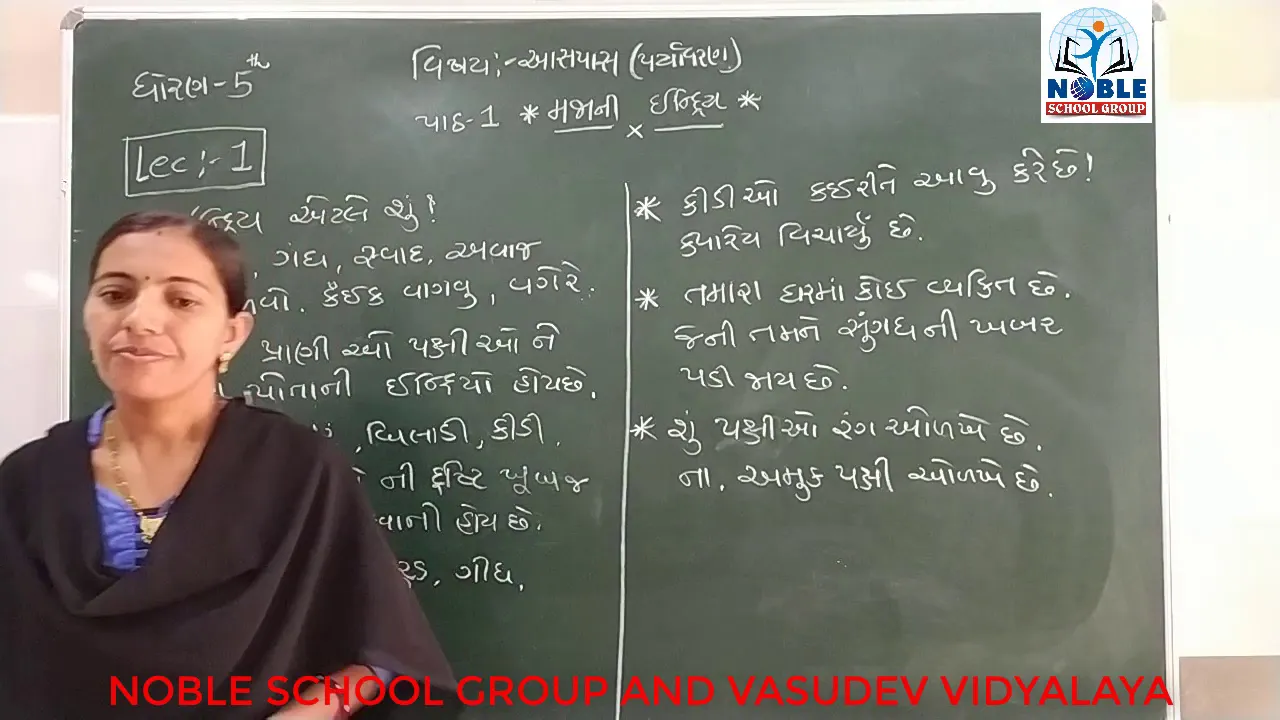 ધોરણ-5th
વિષય:-આસપાસ (પર્યાવરણ)
પાઠ-1 * મજાની ઈન્દ્રિય *
×
Lec:-1
એટલે શું!
ગંધ, સ્વાદ, અવાજ
કંઈક વાગવુ, વગેરે.
પ્રાણીઓ પક્ષીઓ ને
પોતાની ઈન્દ્રિયો હોય છે.
, બિલાડી, કીડી.
ની દ્રષ્ટિ ખૂબ જ
હોય છે.
ગીધ,
* કીડીઓ કઈ રીતે આવુ કરે છે!
ક્યારેય વિચાર્યું છે.
* તમારા ઘરમાં કોઈ વ્યકિત છે.
જેની તમને સુંગધ ની ખબર
પડી જાય છે.
* શું પક્ષીઓ રંગ ઓળખે છે.
ના. અમુક પક્ષી ઓળખે છે.
NOBLE
SCHOOL GROUP
NOBLE SCHOOL GROUP AND VASUDEV VIDYALAYA